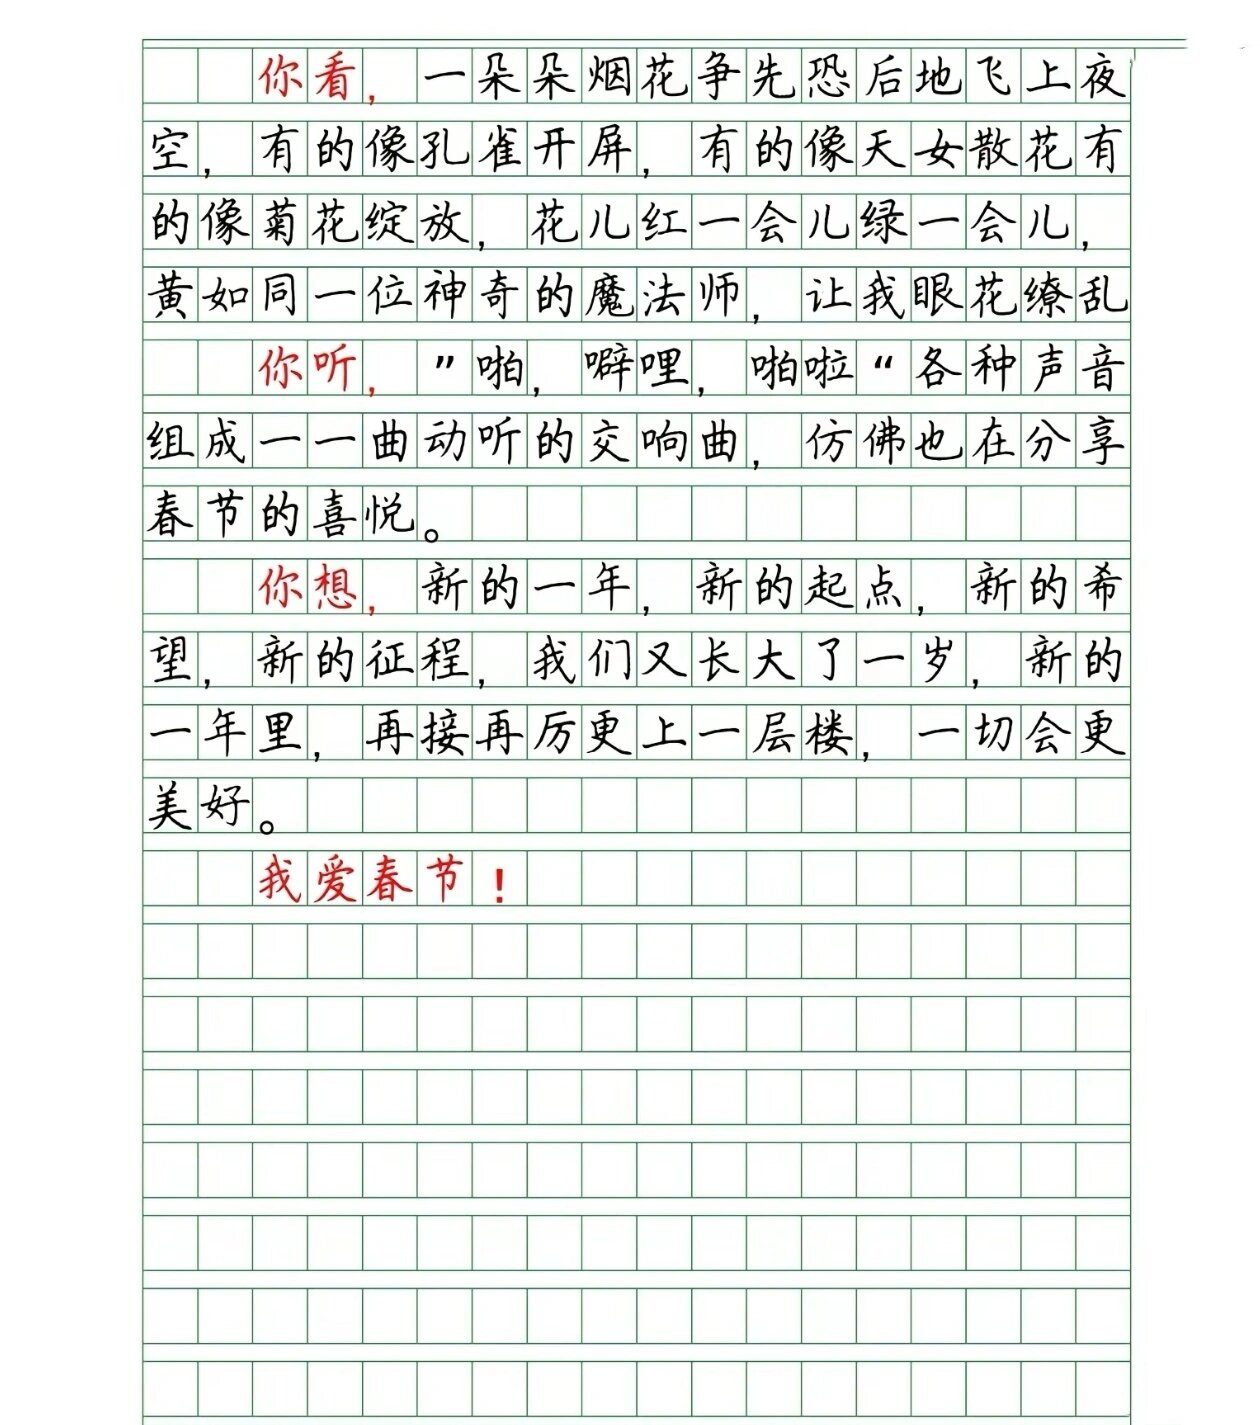 你看，一朵朵烟花争先恐后地飞上夜
空，有的像孔雀开屏，有的像天女散花有
的像菊花绽放，花儿红一会儿绿一会儿，
黄如同一位神奇的魔法师，让我眼花缭乱
你听，”啪，噼哩，啪啦“各种声音
组成一一曲动听的交响曲，仿佛也在分享
春节的喜悦。
你想，新的一年，新的起点，新的希
望，新的征程，我们又长大了一岁，新的
一年里，再接再厉更上一层楼，一切会更
美好。
我爱春节！